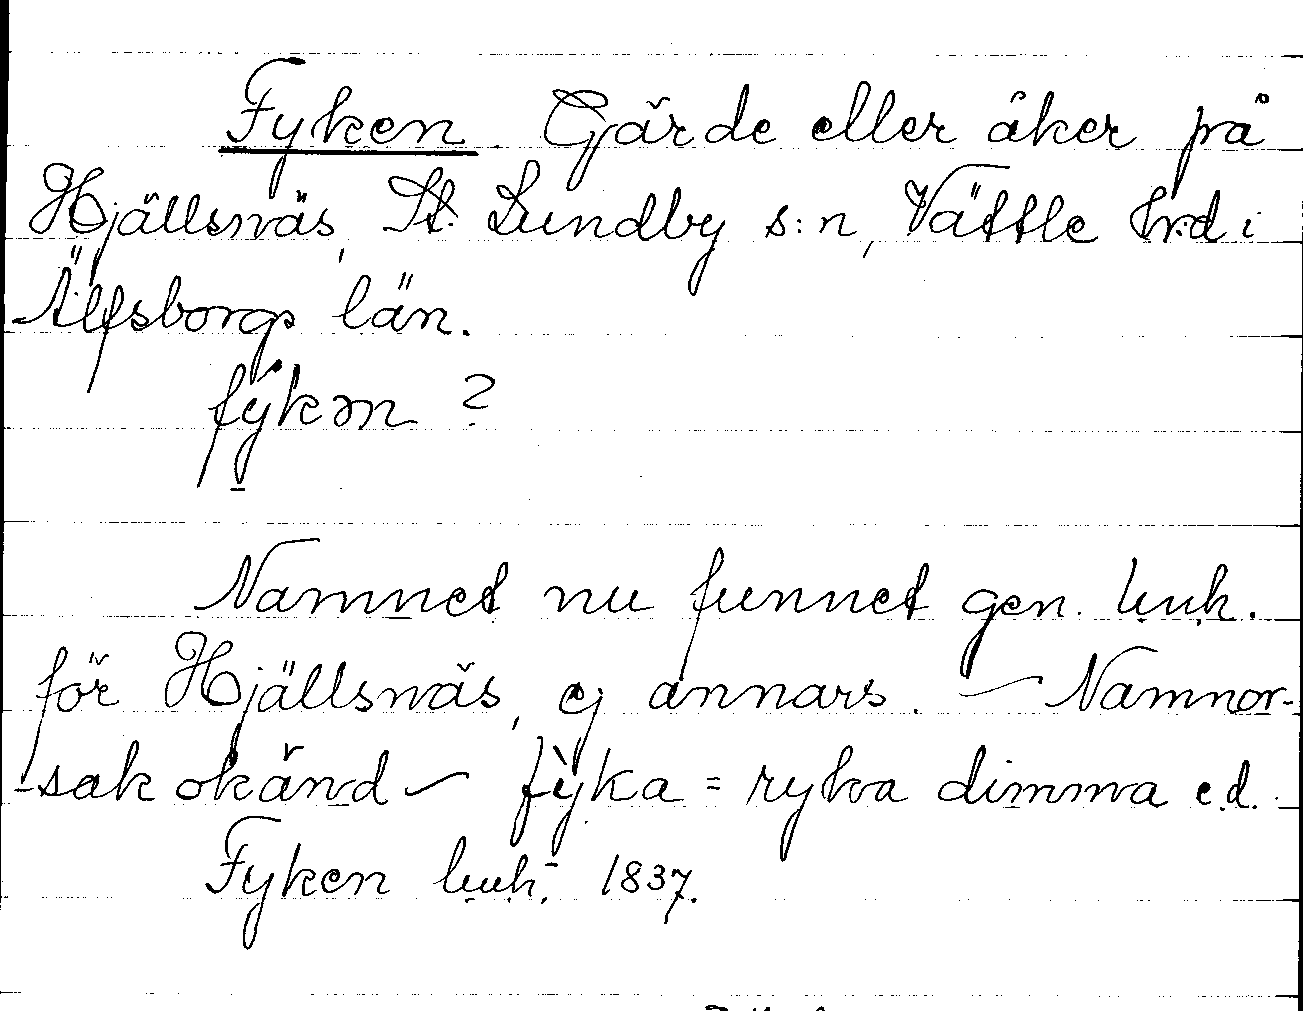 Fyken. Gärde eller åker på
Hjällsnäs, St. Lundby s:n, Vättle hrd i
Älfsborgs län.
fýkən ?
Namnet nu funnet gen. luuh.
för Hjällsnäs, ej annars. — Namnor-
sak okänd — fỳka = ryka dimma e.d.
Fyken luuh. 1837.